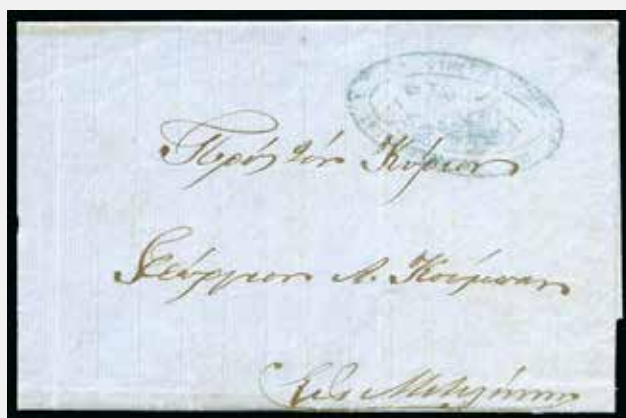 Πρὸς τὸν Κύριον
Γεώργιον Λ. Κούμπαν
Εἰς Μιτυλήνην